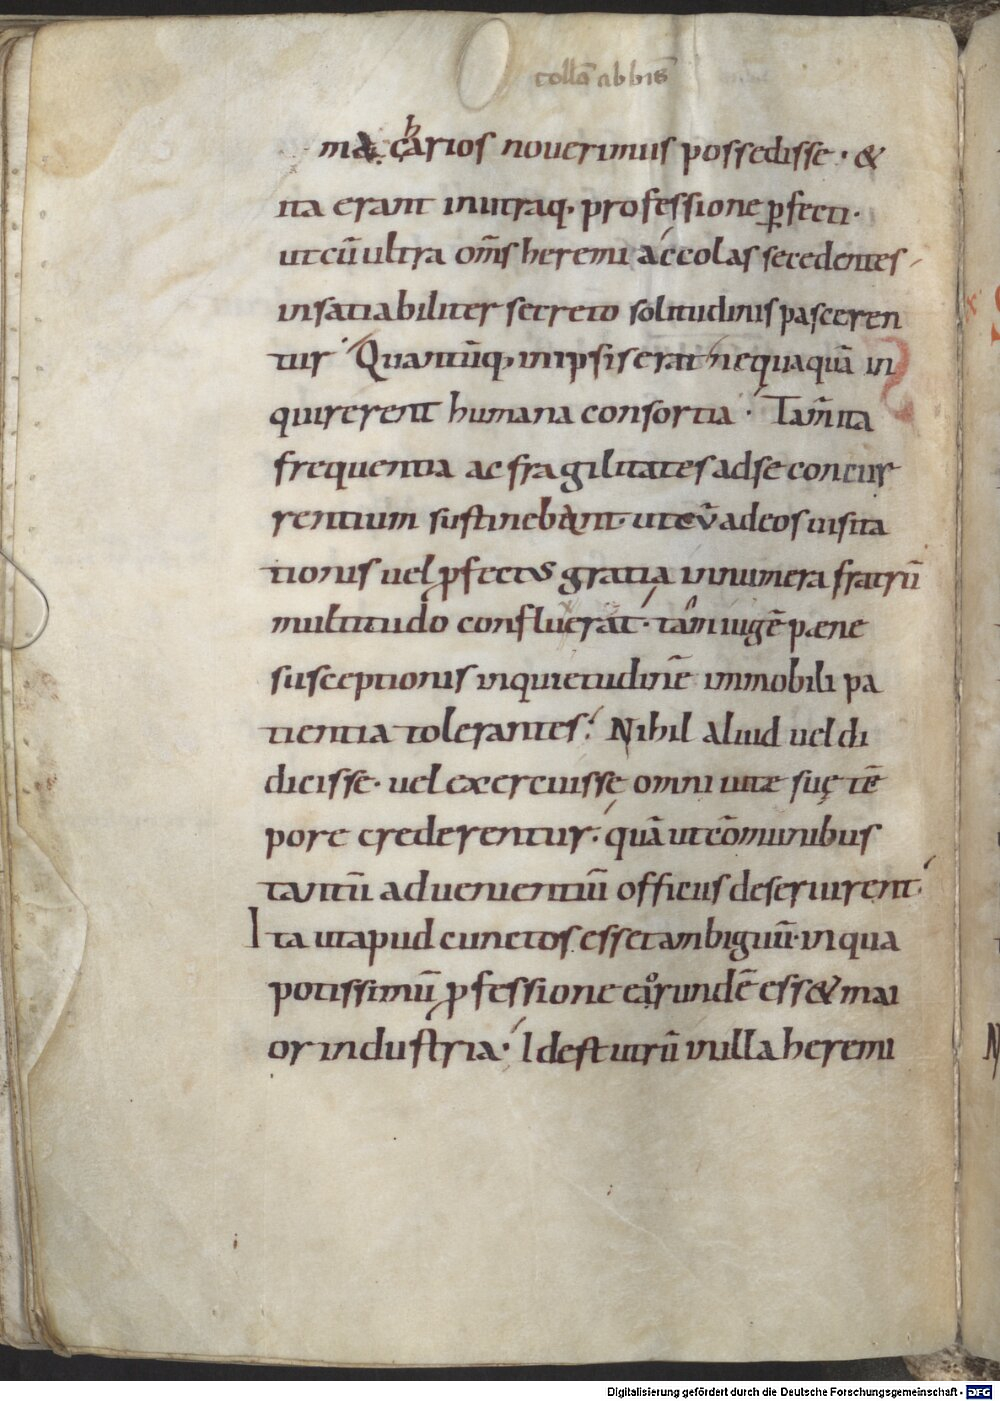 collā abbīs
macharios nouerimus possedisse · &
ita erant inutraq· professione ꝑfecti·
utcū ultra om̄s heremi accolas secedentes
insatiabiliter secreto solitudinis pasceren
tur Quantūq· inipsis erat nequaquā in
quirerent humana consortia · Tam̄ ita
frequentia ac fragilitates adse concur
rentium sustinebant· ut cū adeos uisita
tionis uel ꝓfectus gratia innumera fratrū
multitudo confluerat· tam̄ iugē paene
susceptionis inquietudinē immobili pa
tientia tolerantes· Nihil aliud uel di
dicisse· uel exercuisse omni uitae suę tē
pore crederentur· quā ut cōmunibus
tantū aduenientiū officiis deseruirent
Ita utapud cunctos esset ambiguū· inqua
potissimū ꝓfessione eorundē ess& mai
or industria· Idest utrū inilla heremi
Digitalisierung gefördert durch die Deutsche Forschungsgemeinschaft - DFG